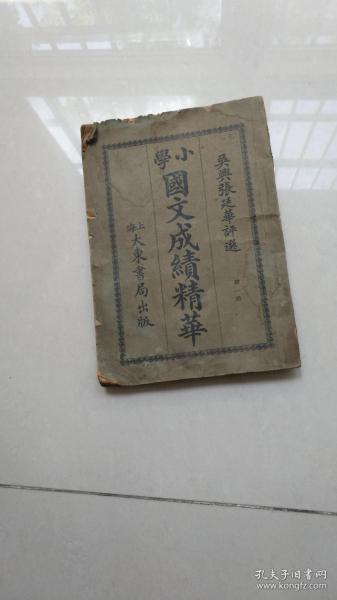 吳興張廷華評選
小學
國文成績精華
上海
大東書局出版
孔夫子旧书网